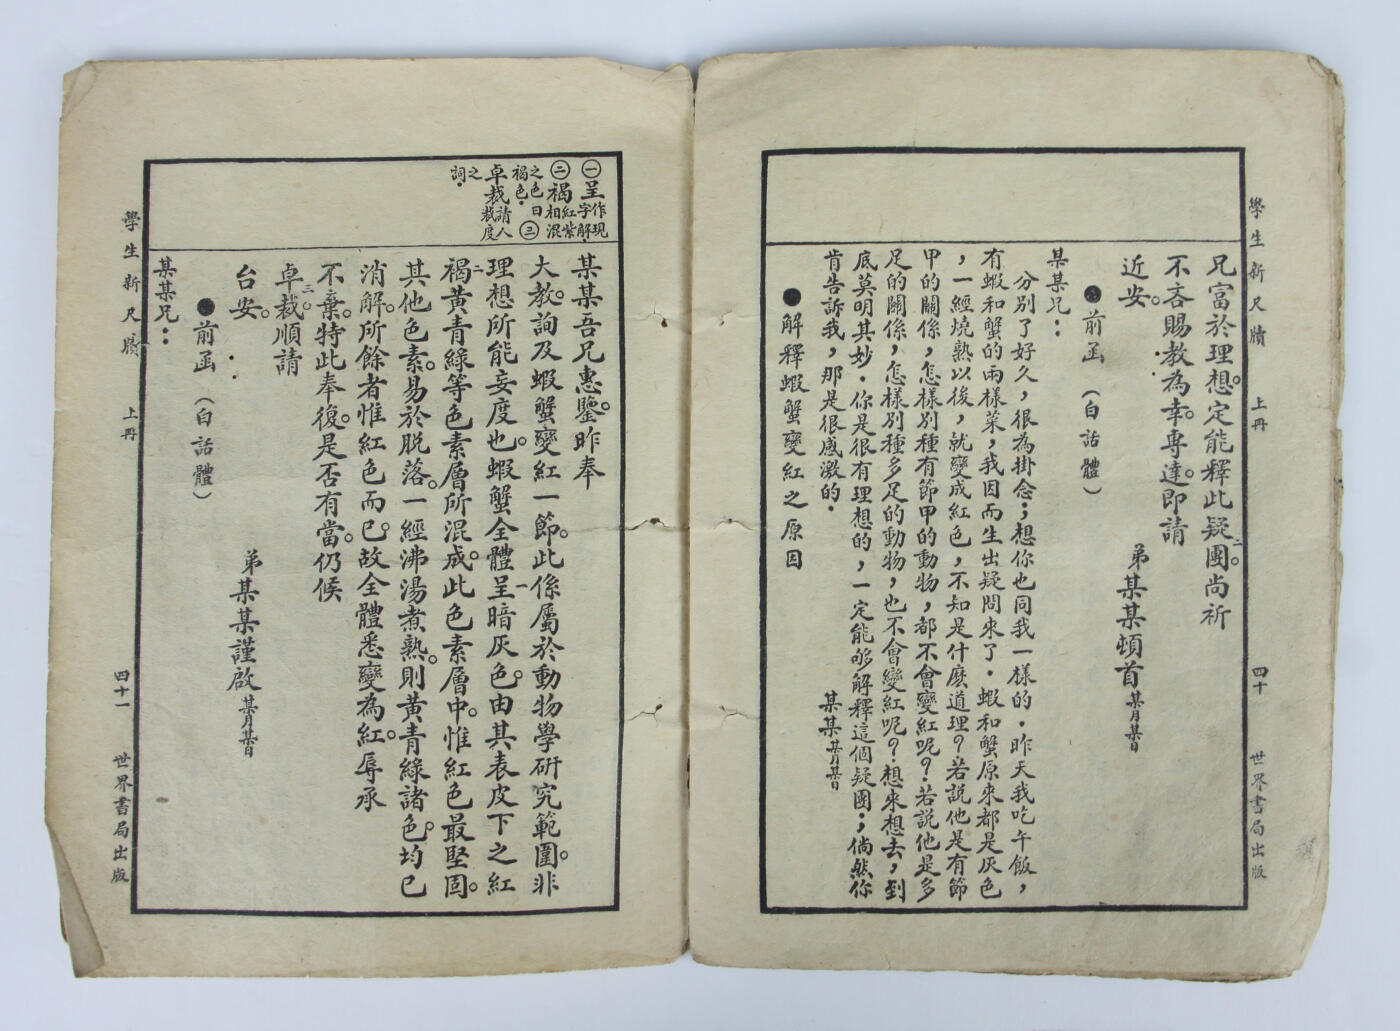 學生新尺牘 上冊 四十 世界書局出版
兄富於理想。定能釋此疑團。二尚祈
不吝賜教為幸。專達。即請
近安。
弟某某頓首某月某日
●前函（白話體）
某某兄：
分別了好久，很為掛念；想你也同我一樣的．昨天我吃午飯，
有蝦和蟹的兩樣菜，我因而生出疑問來了．蝦和蟹原來都是灰色
，一經燒熟以後，就變成紅色，不知是什麽道理？若說他是有節
甲的關係，怎樣別種有節甲的動物，都不會變紅呢？若說他是多
足的關係，怎樣別種多足的動物，也不會變紅呢？想來想去，到
底莫明其妙．你是很有理想的，一定能够解釋這個疑團；倘然你
肯告訴我，那是很感激的．
某某某月某日
●解釋蝦蟹變紅之原因
㊀呈作現字解．
㊁褐紅紫相混之色曰褐色．
㊂卓裁請人裁度之詞．
某某吾兄惠鑒。昨奉
大教。詢及蝦蟹變紅一節。此係屬於動物學研究範圍。非
理想所能妄度也。蝦蟹全體呈一暗灰色。由其表皮下之紅
褐二黃青綠等色素層所混成。此色素層中。惟紅色最堅固。
其他色素。易於脫落。一經沸湯煮熟。則黃青綠諸色。均已
消解。所餘者惟紅色而已。故全體悉變為紅。辱承
不棄。特此奉復。是否有當。仍候
卓裁三。順請
台安。
弟某某謹啟某月某日
●前函（白話體）
某某兄：
學生新尺牘 上冊 四十一 世界書局出版